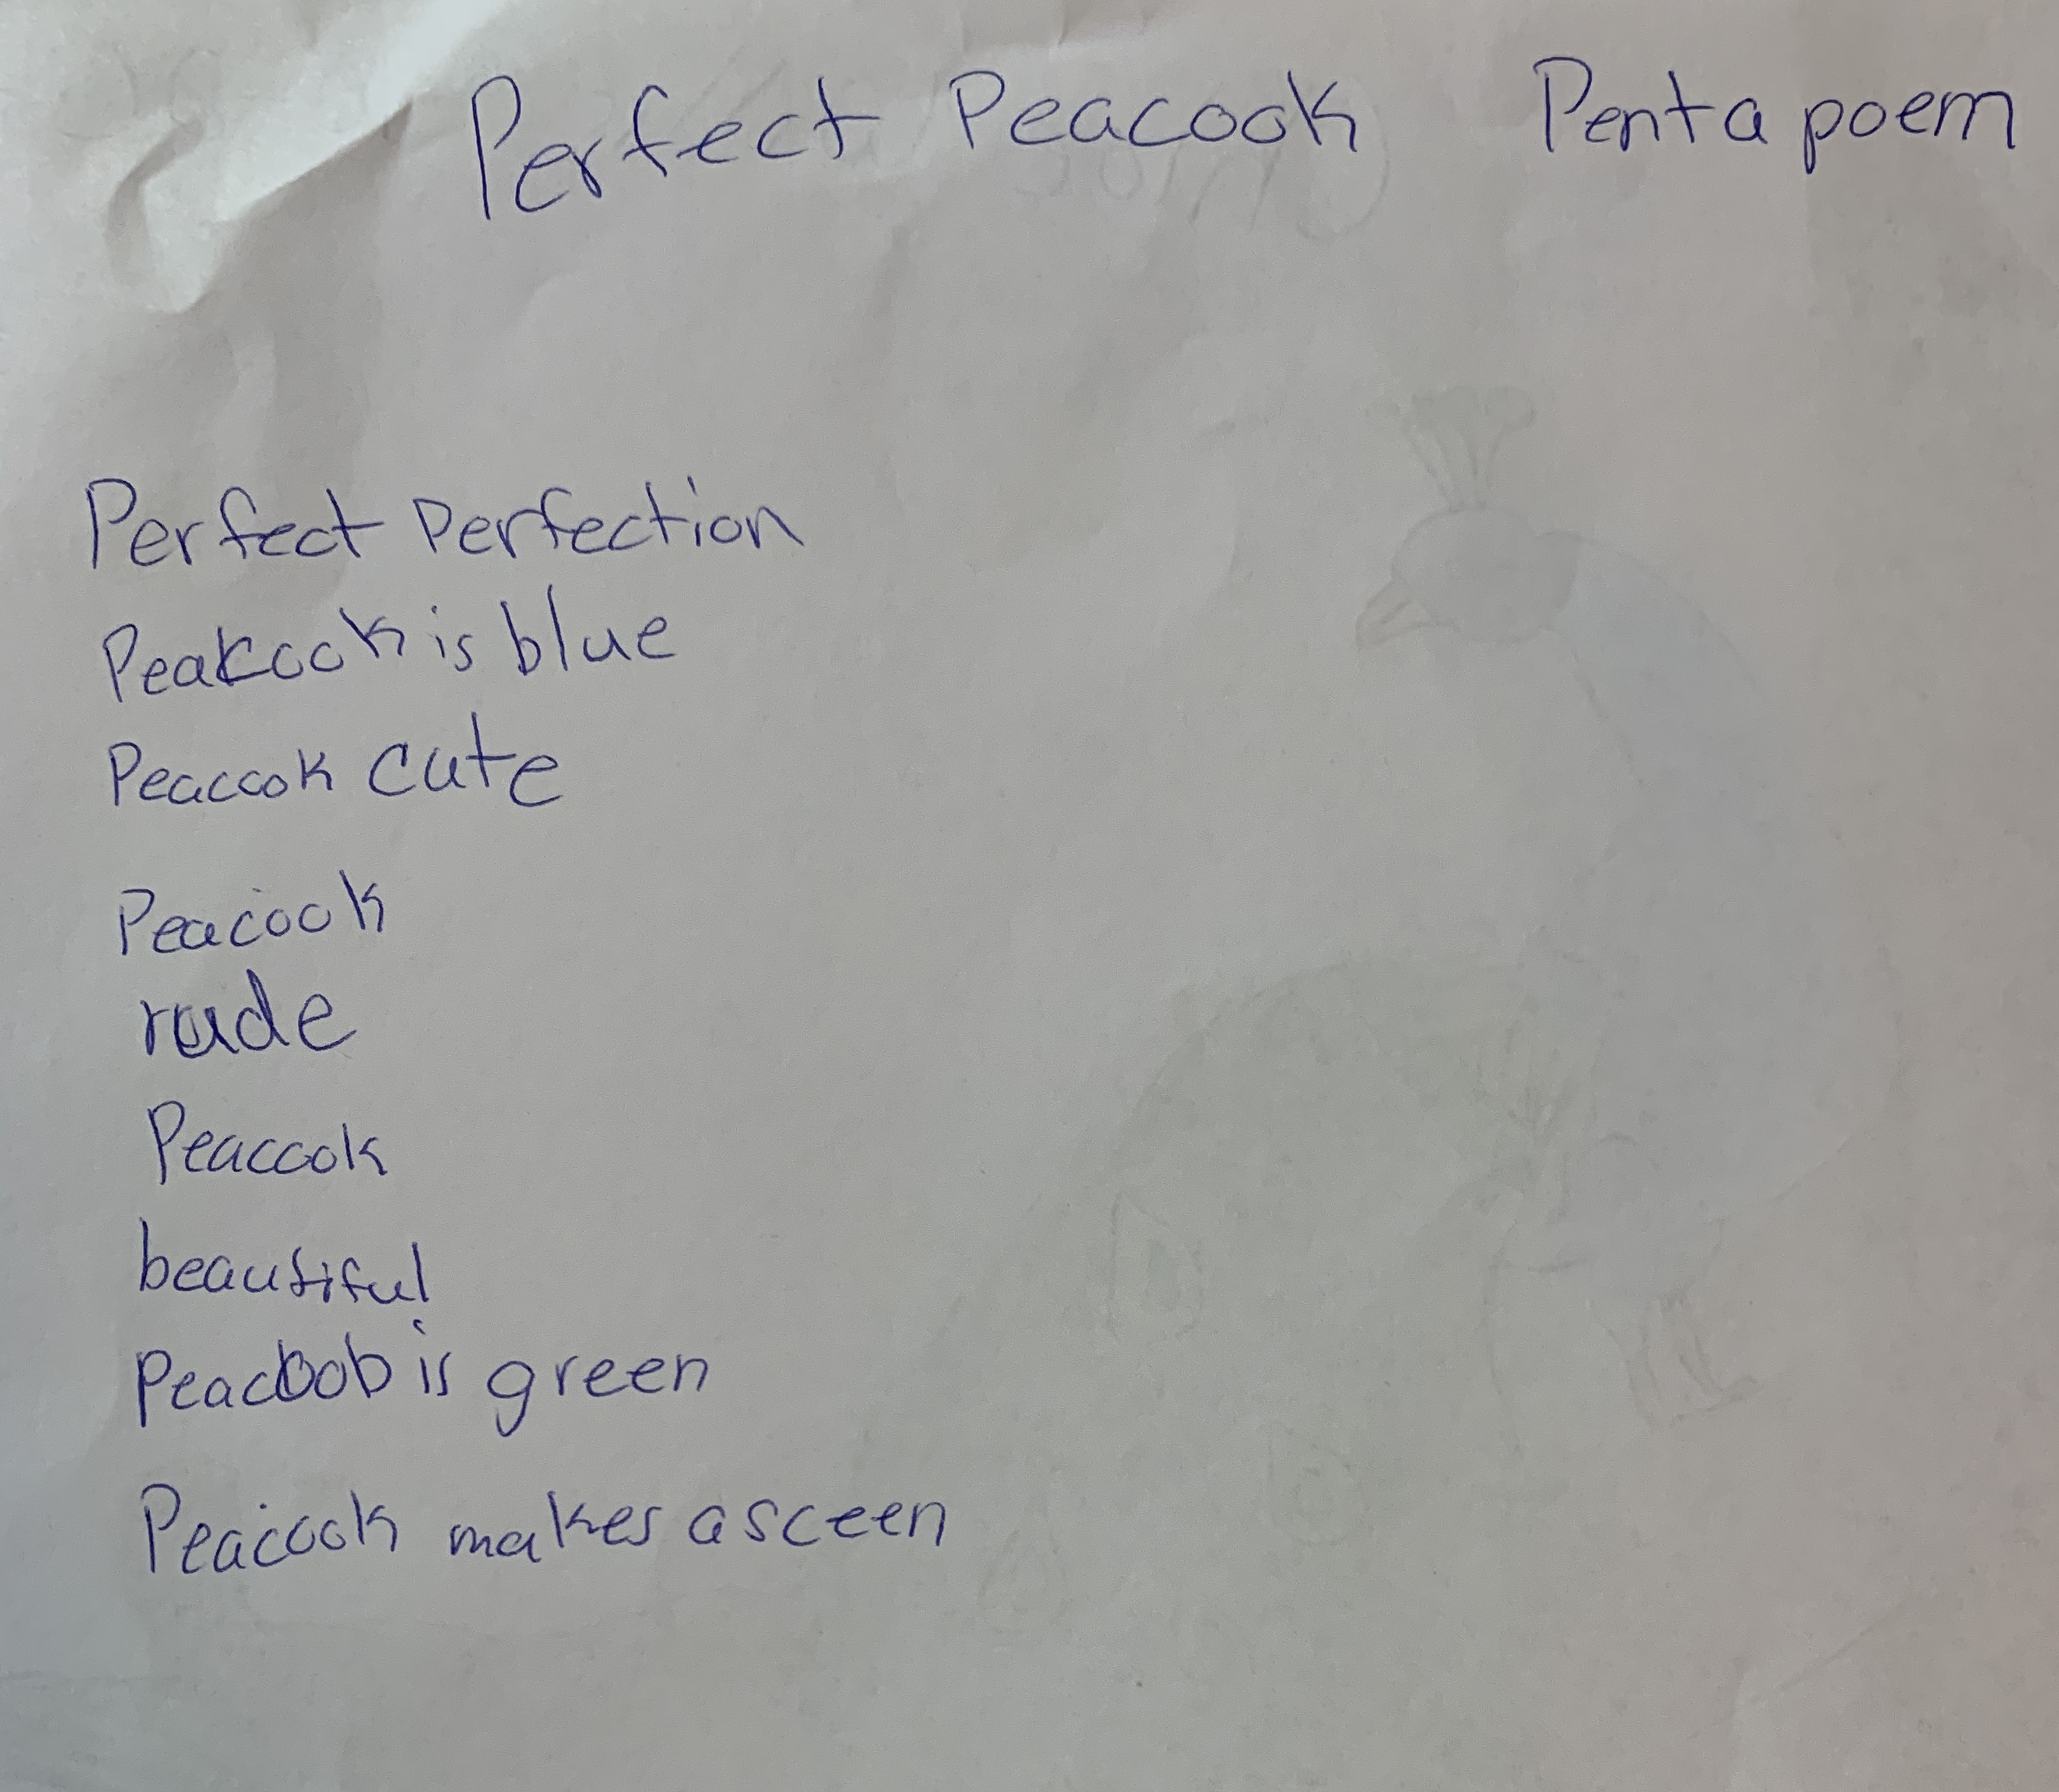 Perfect Peacook Pentapoem
Perfect perfection
Peakcook is blue
Peacook cute
Peacook
rude
Peacook
beautiful
Peacoob is green
Peacook makes a sceen